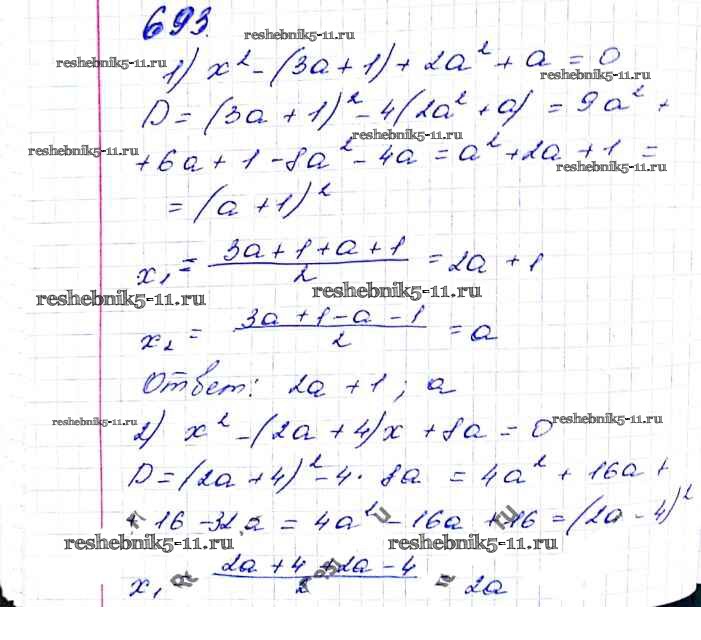 693.
reshebnik5-11.ru.
1) x² - (3a + 1) + 2a² + a = 0
reshebnik5-11.ru
reshebnik5-11.ru
D = (3a + 1)² - 4(2a² + a) = 9a² +
reshebnik5-11.ru
+ 6a + 1 - 8a² - 4a = a² + 2a + 1 =
reshebnik5-11.ru
reshebnik5-11.ru
= (a + 1)²
x₁ = (3a + 1 + a + 1)/2 = 2a + 1
reshebnik5-11.ru
reshebnik5-11.ru
x₂ = (3a + 1 - a - 1)/2 = a
Ответ: 2a + 1; a
reshebnik5-11.ru
reshebnik5-11.ru
2) x² - (2a + 4)x + 8a = 0
D = (2a + 4)² - 4 · 8a = 4a² + 16a +
+ 16 - 32a = 4a² - 16a + 16 = (2a - 4)²
reshebnik5-11.ru
reshebnik5-11.ru
x₁ = (2a + 4 + 2a - 4)/2 = 2a